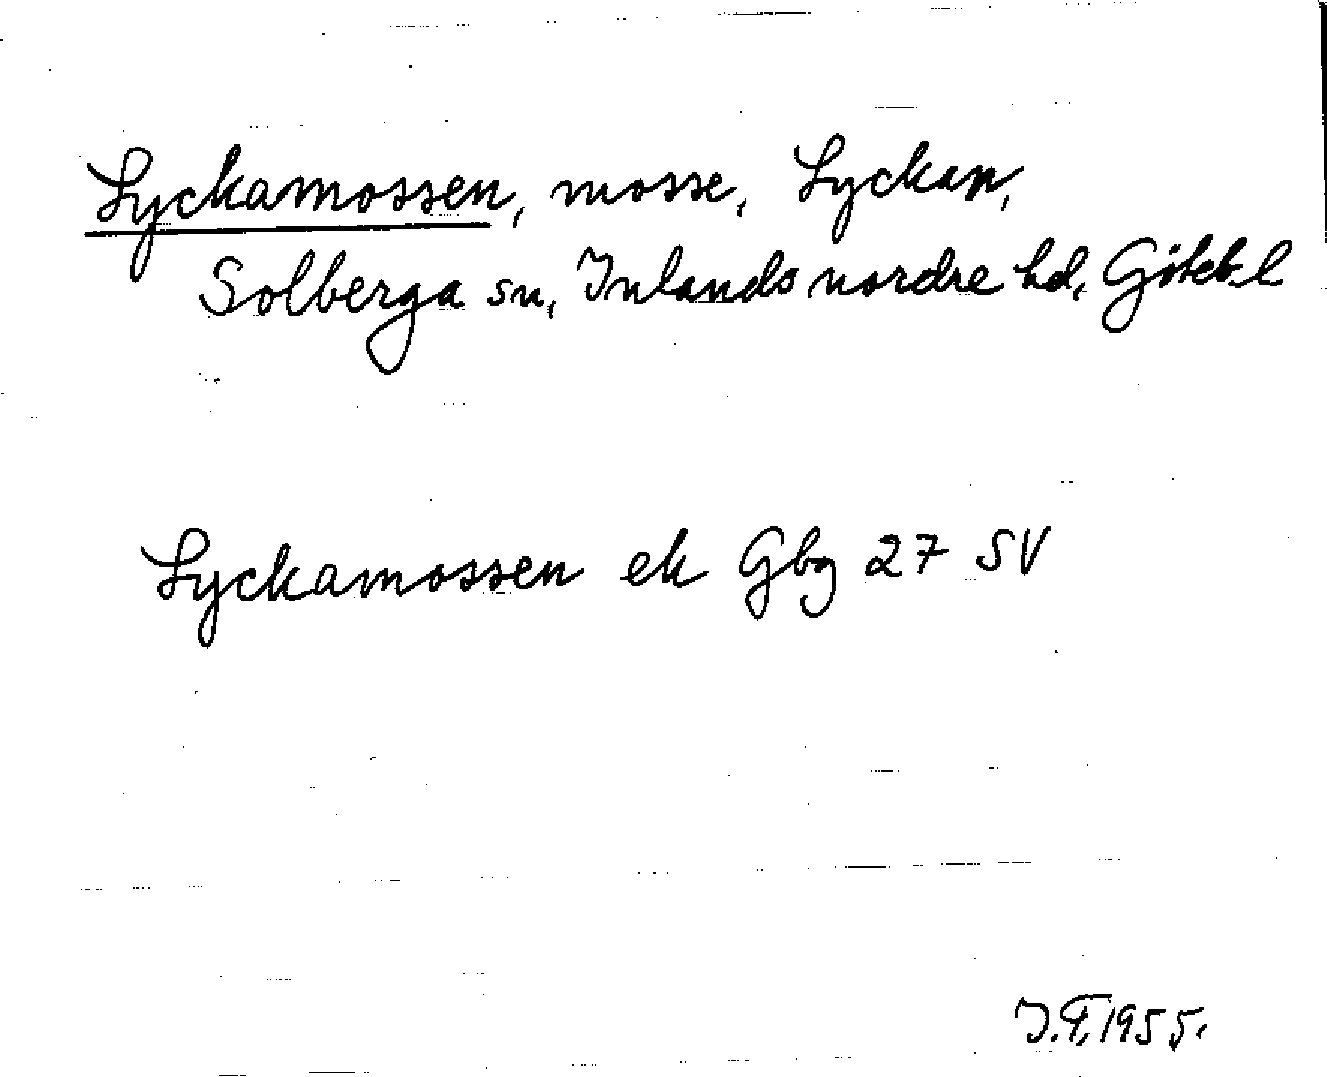 Lyckamossen, mosse, Lyckan,
Solberga sn, Inlands nordre hd, Göteb. l
Lyckamossen ek Gbg 27 SV
1955.